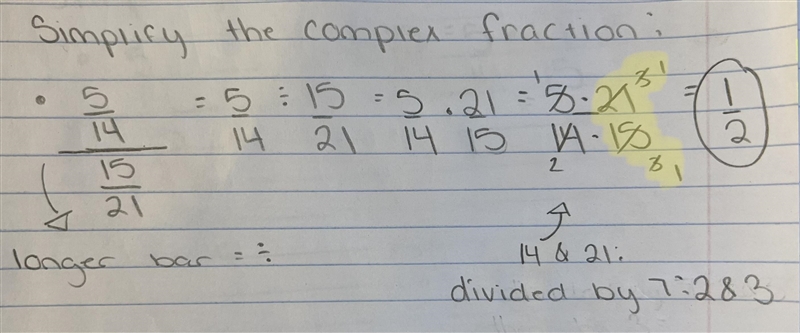 Simplify the complex fraction:
• 5/14 / 15/21 = 5/14 ÷ 15/21 = 5/14 · 21/15 = 5 · 21 / 14 · 15 = 1/2
1 3 1
2 3 1
longer bar = ÷
14 & 21:
divided by 7: 2 & 3